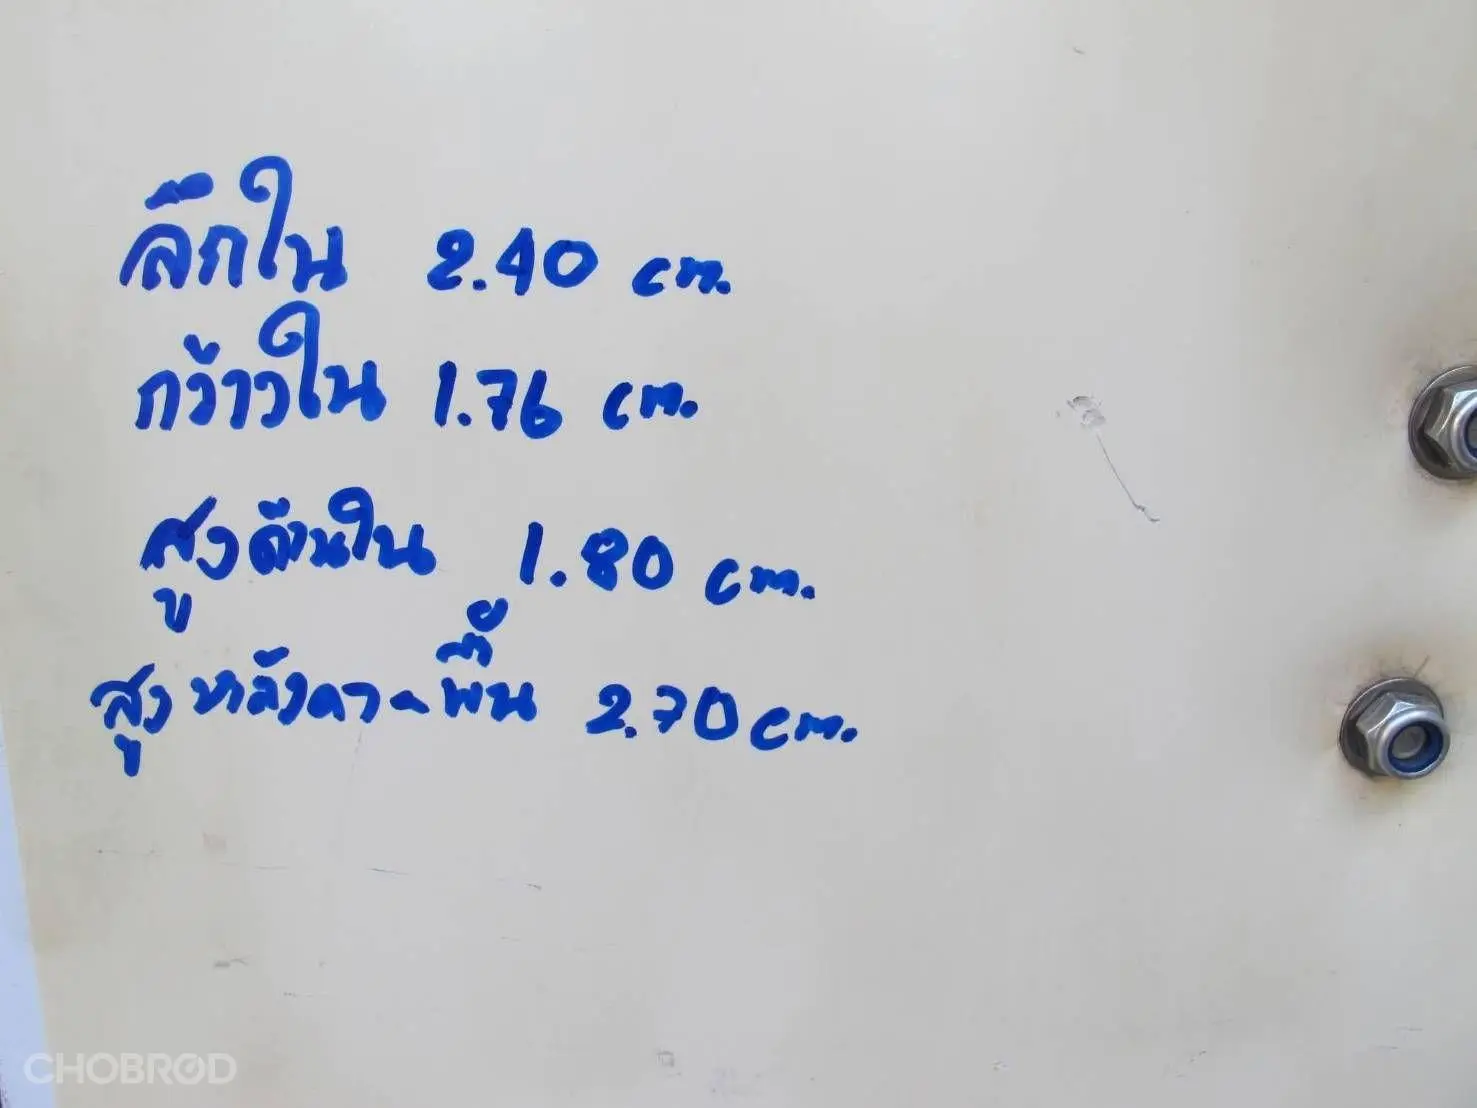 ลึกใน 2.40 cm.
กว้างใน 1.76 cm.
สูงด้านใน 1.80 cm.
สูงหลังคา-พื้น 2.70 cm.
CHOBROD